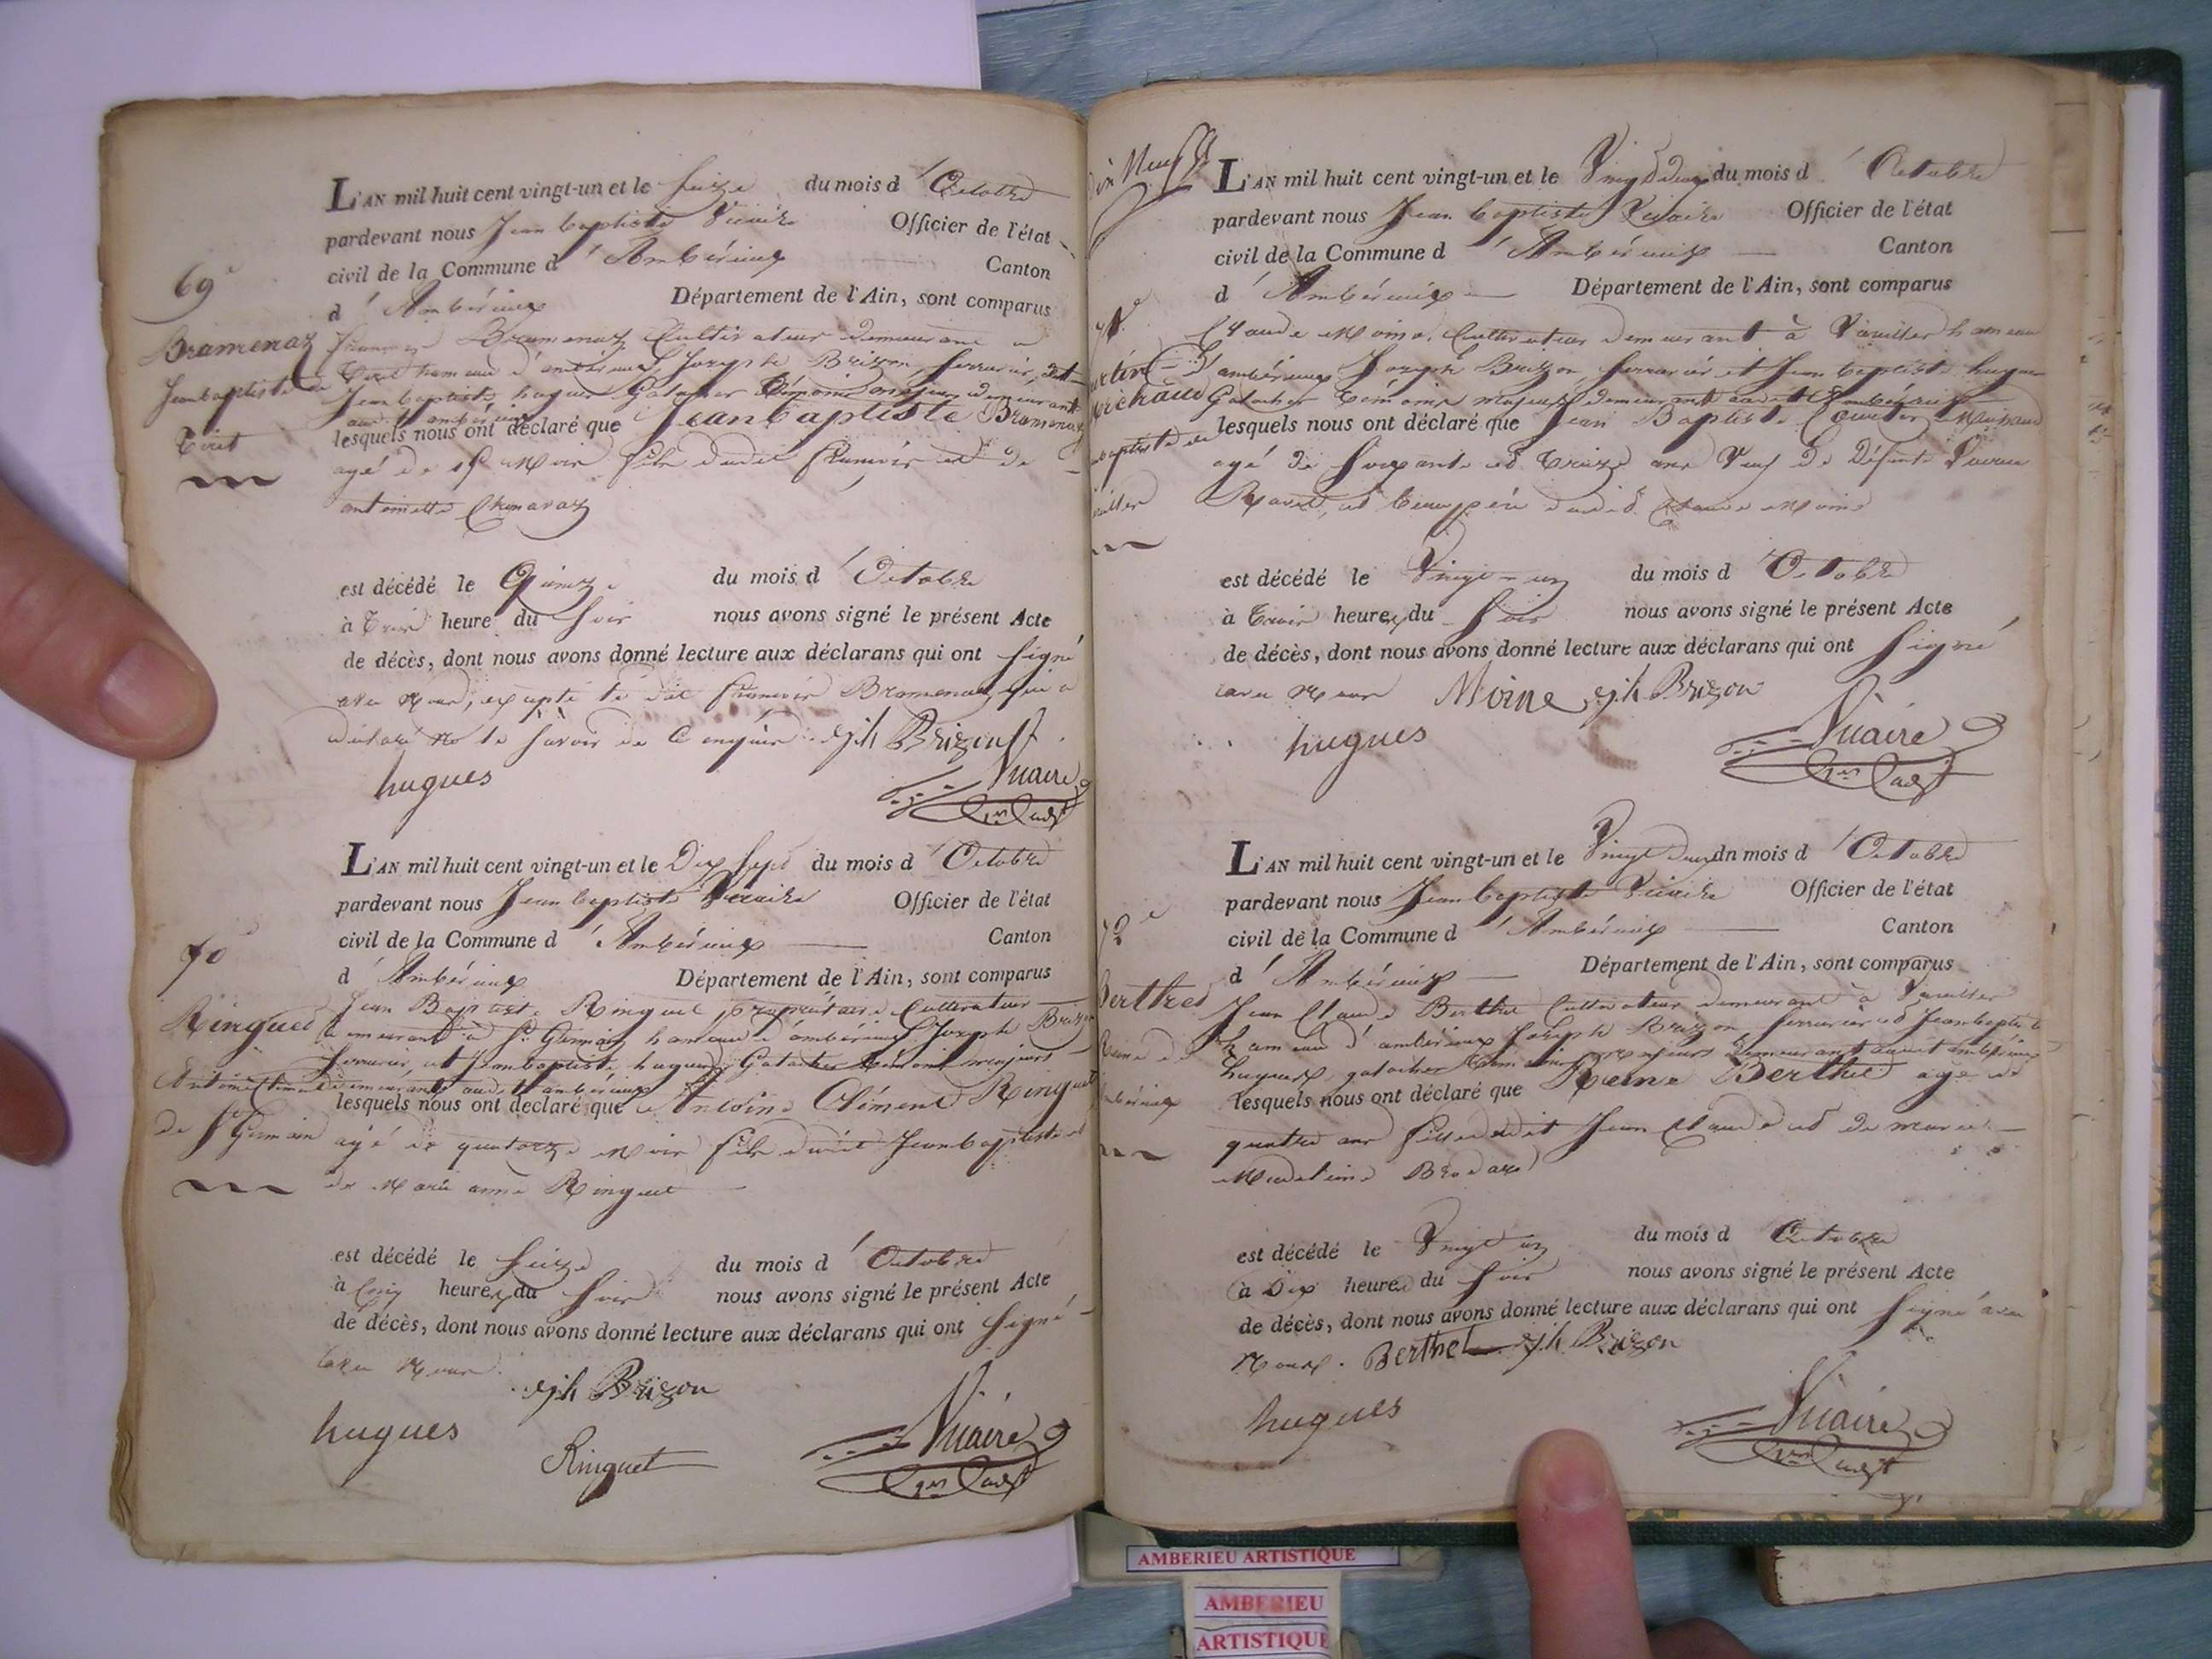 69e
Bramenaz
Jean baptiste de
Tiret
L'AN mil huit cent vingt-un et le seize du mois d'Octobre
pardevant nous Jean baptiste Vicaire Officier de l'état
civil de la Commune d'Ambérieux Canton
d'Ambérieux Département de l'Ain, sont comparus
françois Bramenaz Cultivateur demeurant a
Tiret hameau d'ambérieux, Joseph Brizon, serrurier, et
Jean baptiste hugues Galocher témoins majeurs demeurant
audit ambérieux
lesquels nous ont déclaré que Jean baptiste Bramenaz
agé de mois fils dudit françois et de
antoinette Chenavaz
est décédé le Quinze du mois d'Octobre
à Trois heure du soir nous avons signé le présent Acte
de décès, dont nous avons donné lecture aux déclarans qui ont signé
avec Nous, excepté le dit françois Bramenaz qui a
déclaré ne le savoir de ce enquis. jph Brizon
hugues Vicaire
70e
Ringuet
Antoine Clément
de St Germain
L'AN mil huit cent vingt-un et le Dix sept du mois d'Octobre
pardevant nous Jean baptiste Vicaire Officier de l'état
civil de la Commune d'Ambérieux Canton
d'Ambérieux Département de l'Ain, sont comparus
Jean Baptiste Ringuet propriétaire Cultivateur
demeurant à St Germain hameau d'ambérieux, Joseph Brizon
serrurier, et Jean baptiste hugues Galocher témoins majeurs
demeurant audit ambérieux
lesquels nous ont déclaré que Antoine Clément Ringuet
agé de quatorze mois fils dudit Jean baptiste et
de Marie anne Ringuet
est décédé le seize du mois d'Octobre
à Cinq heures du soir nous avons signé le présent Acte
de décès, dont nous avons donné lecture aux déclarans qui ont signé
avec Nous.
jph Brizon
hugues Ringuet Vicaire
L'AN mil huit cent vingt-un et le Vingt deux du mois d'Octobre
pardevant nous Jean baptiste Vicaire Officier de l'état
civil de la Commune d'Ambérieux Canton
d'Ambérieux Département de l'Ain, sont comparus
Claude Moine, Cultivateur demeurant à Vareilles hameau
D'ambérieux Joseph Brizon serrurier et Jean baptiste hugues
Galocher témoins majeurs demeurant audit Ambérieux
lesquels nous ont déclaré que Jean Baptiste
agé de soixante et treize ans Veuf de Défunte
Ravet, et beaupère dudit Claude Moine
est décédé le Vingt-un du mois d'Octobre
à Trois heures du soir nous avons signé le présent Acte
de décès, dont nous avons donné lecture aux déclarans qui ont signé
avec Nous Moine jph Brizon
hugues Vicaire
72e
Berthet
Reine de
L'AN mil huit cent vingt-un et le Vingt deux du mois d'Octobre
pardevant nous Jean baptiste Vicaire Officier de l'état
civil de la Commune d'Ambérieux Canton
d'Ambérieux Département de l'Ain, sont comparus
Jean Claude Berthet Cultivateur demeurant à Vareilles
hameau d'ambérieux Joseph Brizon serrurier et Jean baptiste
hugues galocher témoins majeurs demeurant audit ambérieux
lesquels nous ont déclaré que Reine Berthet agée de
quatre ans fille dudit Jean Claude et de marie
Madeleine Brodard
est décédé le Vingt un du mois d'Octobre
à Dix heures du soir nous avons signé le présent Acte
de décès, dont nous avons donné lecture aux déclarans qui ont signé avec
Nous. Berthet jph Brizon
hugues Vicaire
AMBERIEU ARTISTIQUE
AMBERIEU
ARTISTIQUE